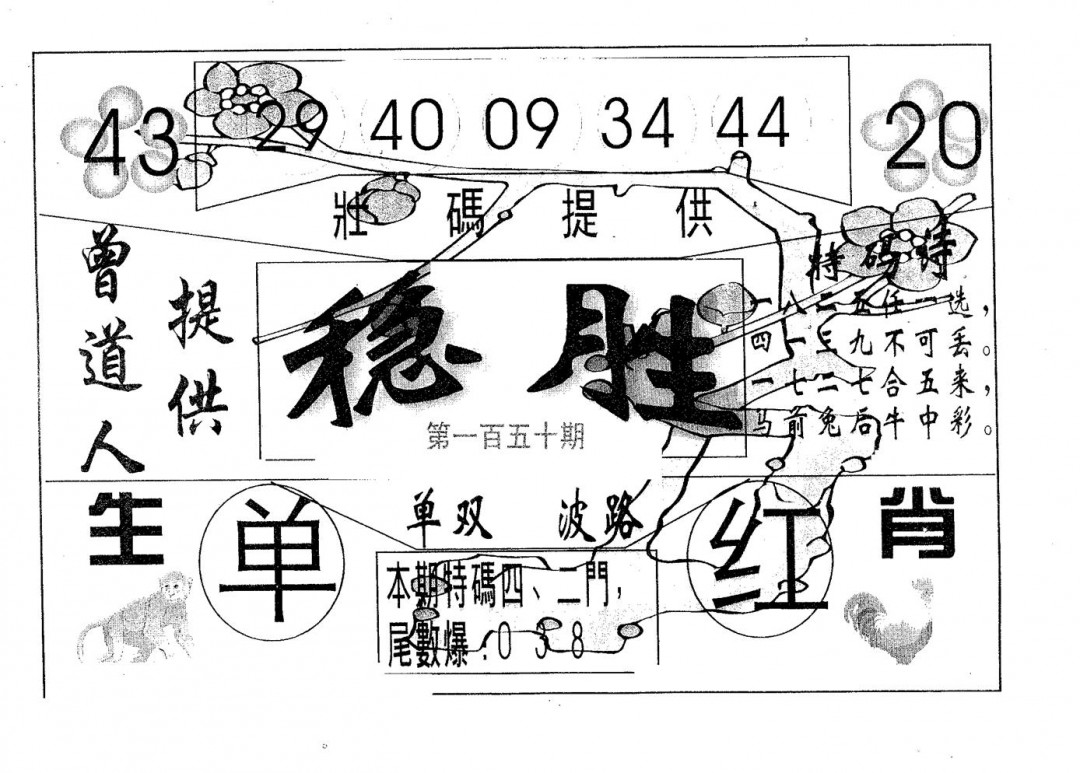 43 29 40 09 34 44 20
壯碼提供
曾道人
提供
特码诗
一八二五任一选，
四一三九不可丢。
一七二七合五来，
马前兔后牛中彩。
稳胜
第一百五十期
生肖
单双 波路
单
红
本期特碼四、二門，
尾數爆：0 3 8